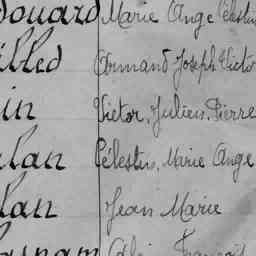 douard Marie Ange Célestin
Armand Joseph Victo
in Victor, Julien, Pierre
lan Célestin, Marie Ange
lan Jean Marie